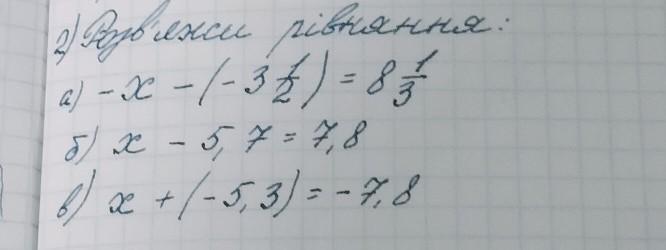 2) Розв'яжи рівняння:
а) - x - (- 3 1/2) = 8 1/3
б) x - 5,7 = 7,8
в) x + (- 5,3) = - 7,8